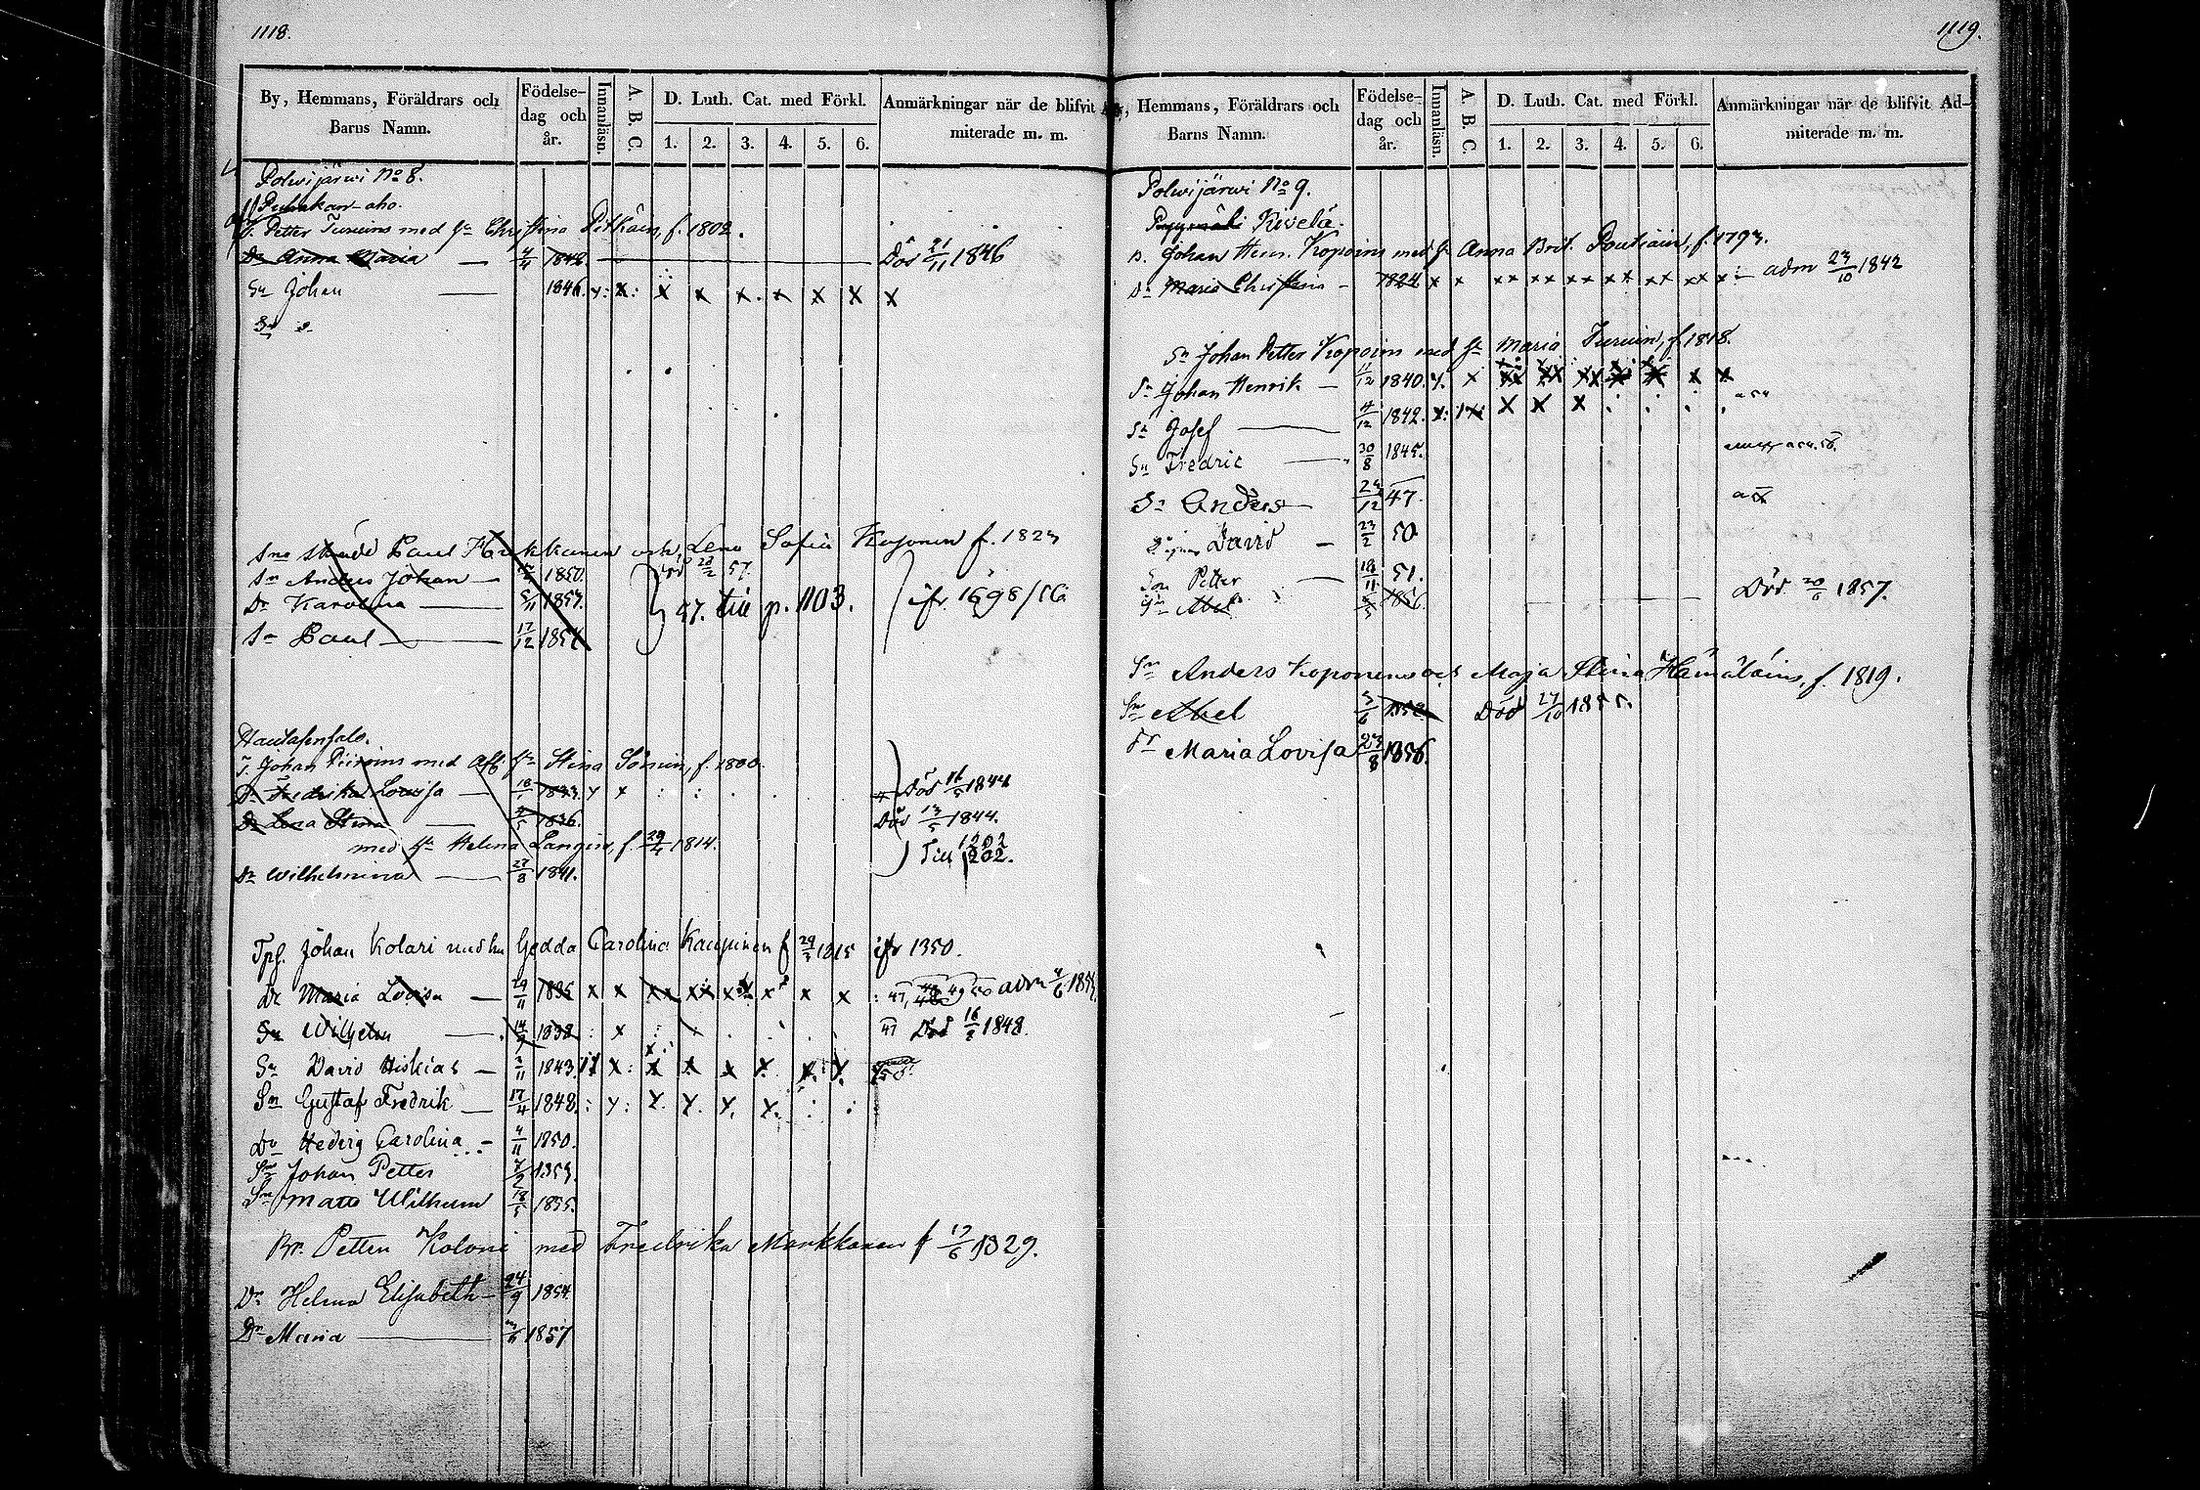 1118.
By, Hemmans, Föräldrars och Barns Namn.
Födelse-dag och år.
Innanläsn.
A. B. C.
D. Luth. Cat. med Förkl.
1. 2. 3. 4. 5. 6.
Anmärkningar när de blifvit Admiterade m. m.
Polvijärvi No 8.
Puhakan-aho.
T. Petter Turuins med Hu Christina Pitkäin, f. 1802.
Dr Anna Maria — 1842 Död 21/11 1846
Sn Johan — 1846. x: x: x x x. x x x x
Paul och Lena Sofia Koponen f. 1823
Sn Anders Johan — 1850. 57.
Dr Karolina — 5/11 1857. 47. till p. 1103. ifr 1698/56
Sn Paul — 17/12 1854
T. Johan Piiroins med Afl. Hu Stina Sormuin, f. 1800.
Dr Fredrika Lovisa — 18/1 1833. x x Död 16/5 1844
Dr Lena Stina — 1836. Död 13/5 1844.
med Hu Helena Langin, f. 29/4 1814. Till 1202.
Dr Wilhelmina — 27/8 1841.
Johan Kolari med hu Hedda Carolina Kaupinen f 1815 ifr 1350.
Dr Maria Lovisa — 29/11 1835 x x xx xx x x x x adm 4/6 1854
Sn Wilhelm — 1838 : x 47 Död 1848.
Sn David Hiskias — 2/11 1843. x x: x x x x. x. x.
Sn Gustaf Fredrik — 17/4 1848. : x: x. x. x. x. : :
Dr Hedvig Carolina — 4/11 1850.
Sn Johan Petter 1853.
Sn Matts Wilhelm 18/5 1855.
Br. Petter Koloni med Fredrika Markkanen f 17/6 1829.
Dr Helena Elisabeth — 24/9 1854.
Dr Maria — 1857
1119.
By, Hemmans, Föräldrars och Barns Namn.
Födelse-dag och år.
Innanläsn.
A. B. C.
D. Luth. Cat. med Förkl.
1. 2. 3. 4. 5. 6.
Anmärkningar när de blifvit Admiterade m. m.
Polvijärvi No 9.
Kivelä.
B. Johan Hen. Kopoins med Hu Anna Brit. Poutiain, f. 1793.
Dr Maria Christina — 1824 x x xx xx xx xx xx xx x: — adm 23/10 1842
Sn Johan Petter Kopoins med Hu Maria Turuin, f. 1818.
Sn Johan Henrik — 11/12 1840. x. x xx xx xx x x x x
Sn Josef — 4/12 1842. x: x: x x x : : :
Sn Fredric — 30/8 1845.
Sn Anders — 24/12 47.
David — 23/2 50.
Son Petter — 18/11 51.
Sn Abel — 1856. — Död 20/6 1857.
Sn Anders Koponens och Maja Stina Hämäläins, f. 1819.
Sn Abel 5/6 1852 Död 27/10 1855.
Dr Maria Lovisa 23/8 1856.